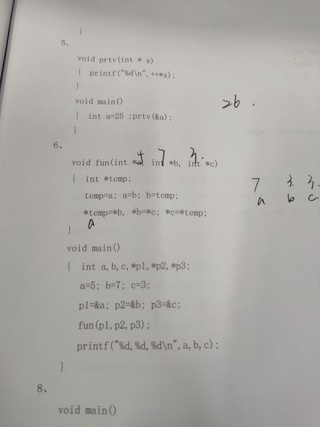 }
5、
void prtv(int * x)
{ printf("%d\n",++*x);
}
void main()
26.
{ int a=25 ;prtv(&a);
}
6、
5 7 3.
void fun(int *a, int *b, int *c)
{ int *temp;
7 3. 3.
temp=a; a=b; b=temp;
a b c
*temp=*b, *b=*c; *c=*temp;
a
}
void main()
{ int a,b,c,*p1,*p2,*p3;
a=5; b=7; c=3;
p1=&a; p2=&b; p3=&c;
fun(p1,p2,p3);
printf("%d,%d,%d\n",a,b,c);
}
8、
void main()